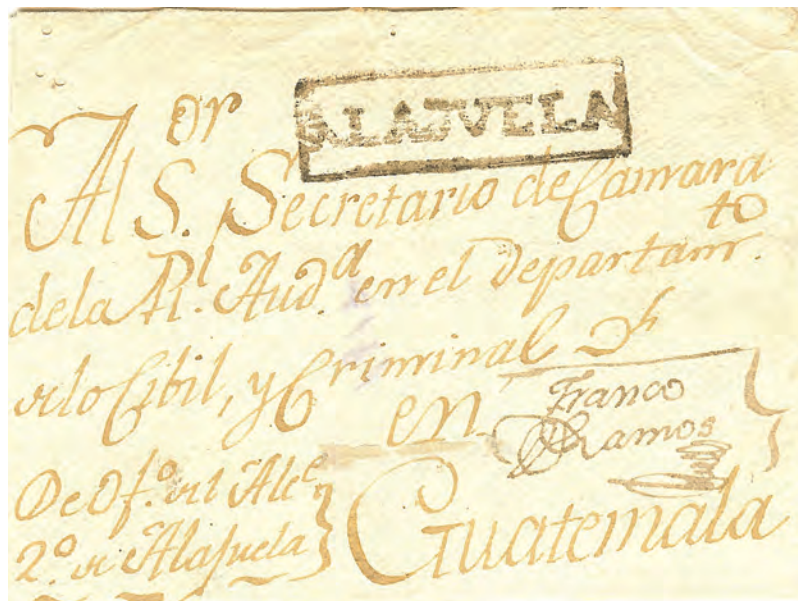 ALAJUELA
Al S.or Secretario de Camara
dela Rl. Aud.a en el Departam.to
delo Cibil, y Criminal
en
Franco
Ramos
De Of.o del Alc.e
2.o de Alajuela
Guatemala